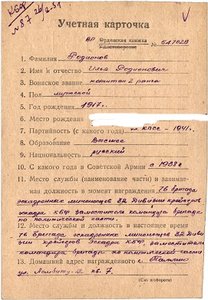 КБФ
V
Учетная карточка
Орденская книжка № Б427028
Удостоверение
1. Фамилия Родионов
2. Имя и отчество Илья Родионович
3. Воинское звание капитан 2 ранга
4. Пол мужской
5. Год рождения 1917 г.
6. Место рождения
7. Партийность (с какого года) КПСС - 1941 г.
8. Образование Высшее
9. Национальность русский
10. С какого года в Советской Армии с 1938 г.
11. Место службы (наименование части) и занимаемая
должность в момент награждения 76 бригада
эскадренных миноносцев дивизии крейсеров
эскадры КБФ заместитель командира бригады
по политической части.
12. Место службы и должность в настоящее время
76 бригада эскадренных миноносцев
крейсеров эскадры КБФ заместитель
командира бригады по политической части
13. Домашний адрес награжденного г. Таллин
ул. кв. 7.